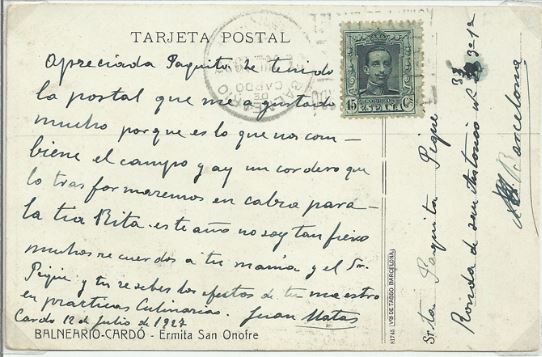 TARJETA POSTAL
Apreciada Paquita he tenido
la postal que me a gustado
mucho porque es lo que nos com-
biene el campo y ay un cordero que
lo tras formaremos en cabra para-
la tia Rita. este año no soy tan fiero
muchos recuerdos a tu mamia y el Sr.
Piqué. y tu recibes los efectos de tu maestro
en practicas Culinarias. Juan Matas
Cardo 12 de Julio de 1927
BALNEARIO-CARDÓ - Ermita San Onofre
CARDO
15 Cs
VDE DE TASSO BARCELONA
Srta Paquita Piqué
Ronda de san Antonio nº 33 3º 1ª
Barcelona